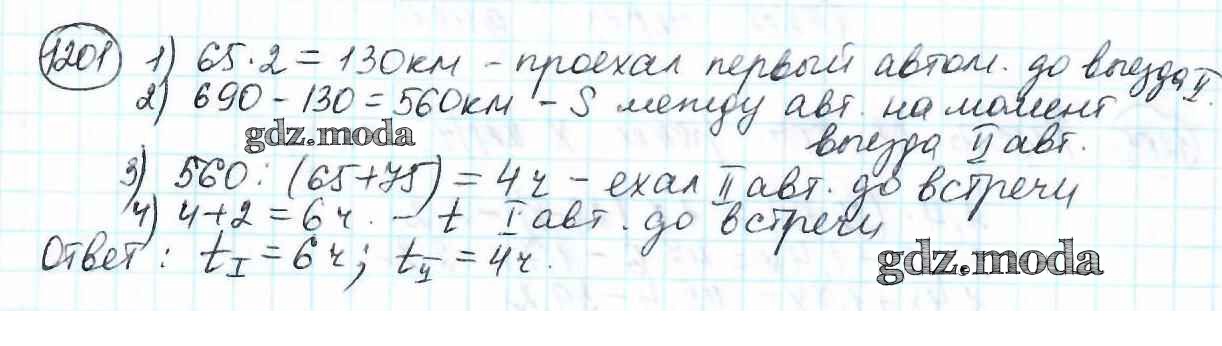 1201 1) 65·2=130км - проехал первый автом. до выезда II.
2) 690-130=560км - S между авт. на момент
gdz.moda
выезда II авт.
3) 560:(65+75)=4ч - ехал II авт. до встречи
4) 4+2=6ч. - t I авт. до встречи
Ответ: tI=6ч; tII=4ч.
gdz.moda